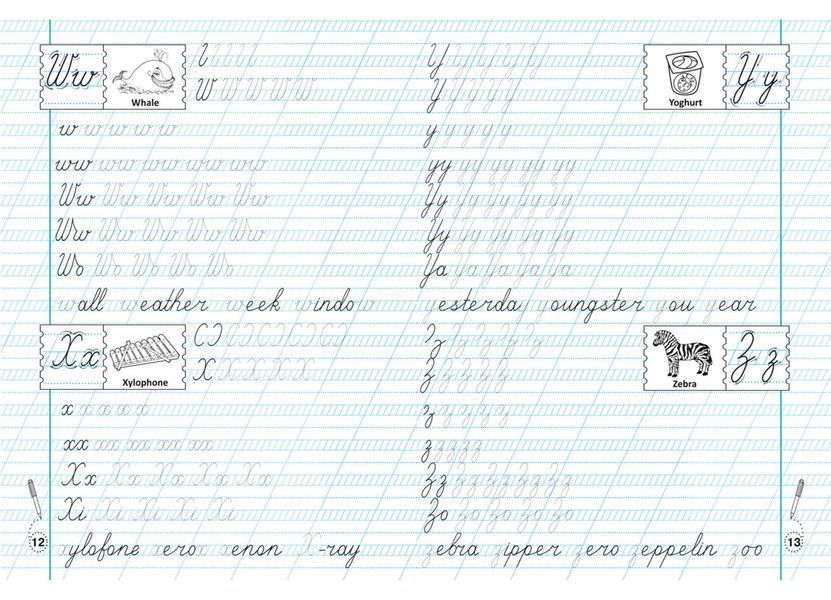 Ww
Whale
W W W W W
w w w w w
ww ww ww ww ww
Ww Ww Ww Ww Ww
Ww Ww Ww Ww Ww
Wo Wo Wo Wo Wo
wall weather week window
Xx
Xylophone
X X X X X
x x x x x
xx xx xx xx xx
Xx Xx Xx Xx Xx
Xi Xi Xi Xi Xi
xylofone xerox xenon X-ray
12
Yy
Yoghurt
Y Y Y Y Y
y y y y y
yy yy yy yy yy
Yy Yy Yy Yy Yy
Yy Yy Yy Yy Yy
Ya Ya Ya Ya Ya
yesterday youngster you year
Zz
Zebra
Z Z Z Z Z
z z z z z
zzzzz
Zz Zz Zz Zz Zz
Zo Zo Zo Zo Zo
zebra zipper zero zeppelin zoo
13